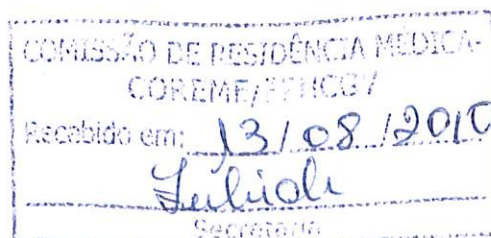 COMISSÃO DE RESIDÊNCIA MÉDICA-
COREME/
Recebido em: 13/08/2010
Secretaria